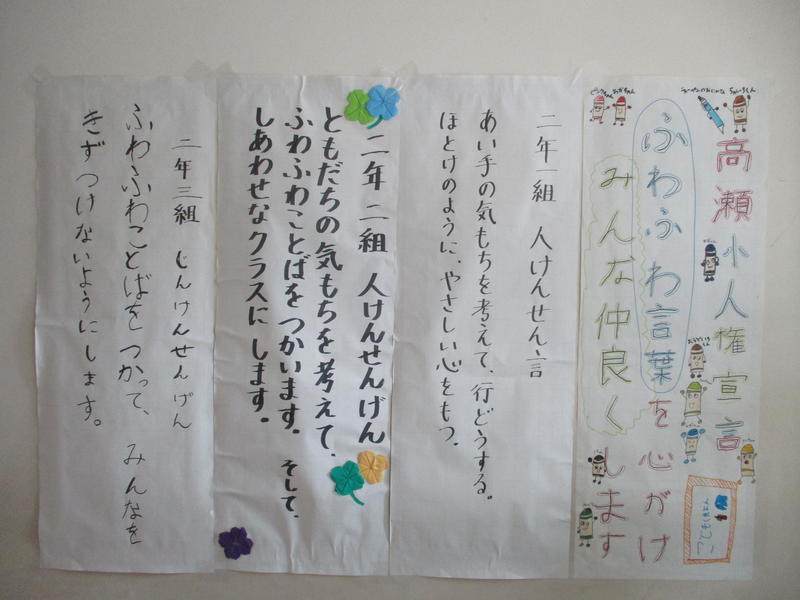 高瀬小人権宣言
ふわふわ言葉を心がけ
みんな仲良くします
二年一組 人けんせん言
あい手の気もちを考えて、行どうする。
ほとけのように、やさしい心をもつ。
二年二組 人けんせんげん
ともだちの気もちを考えて、
ふわふわことばをつかいます。そして、
しあわせなクラスにします。
二年三組 じんけんせんげん
ふわふわことばをつかって、みんなを
きずつけないようにします。